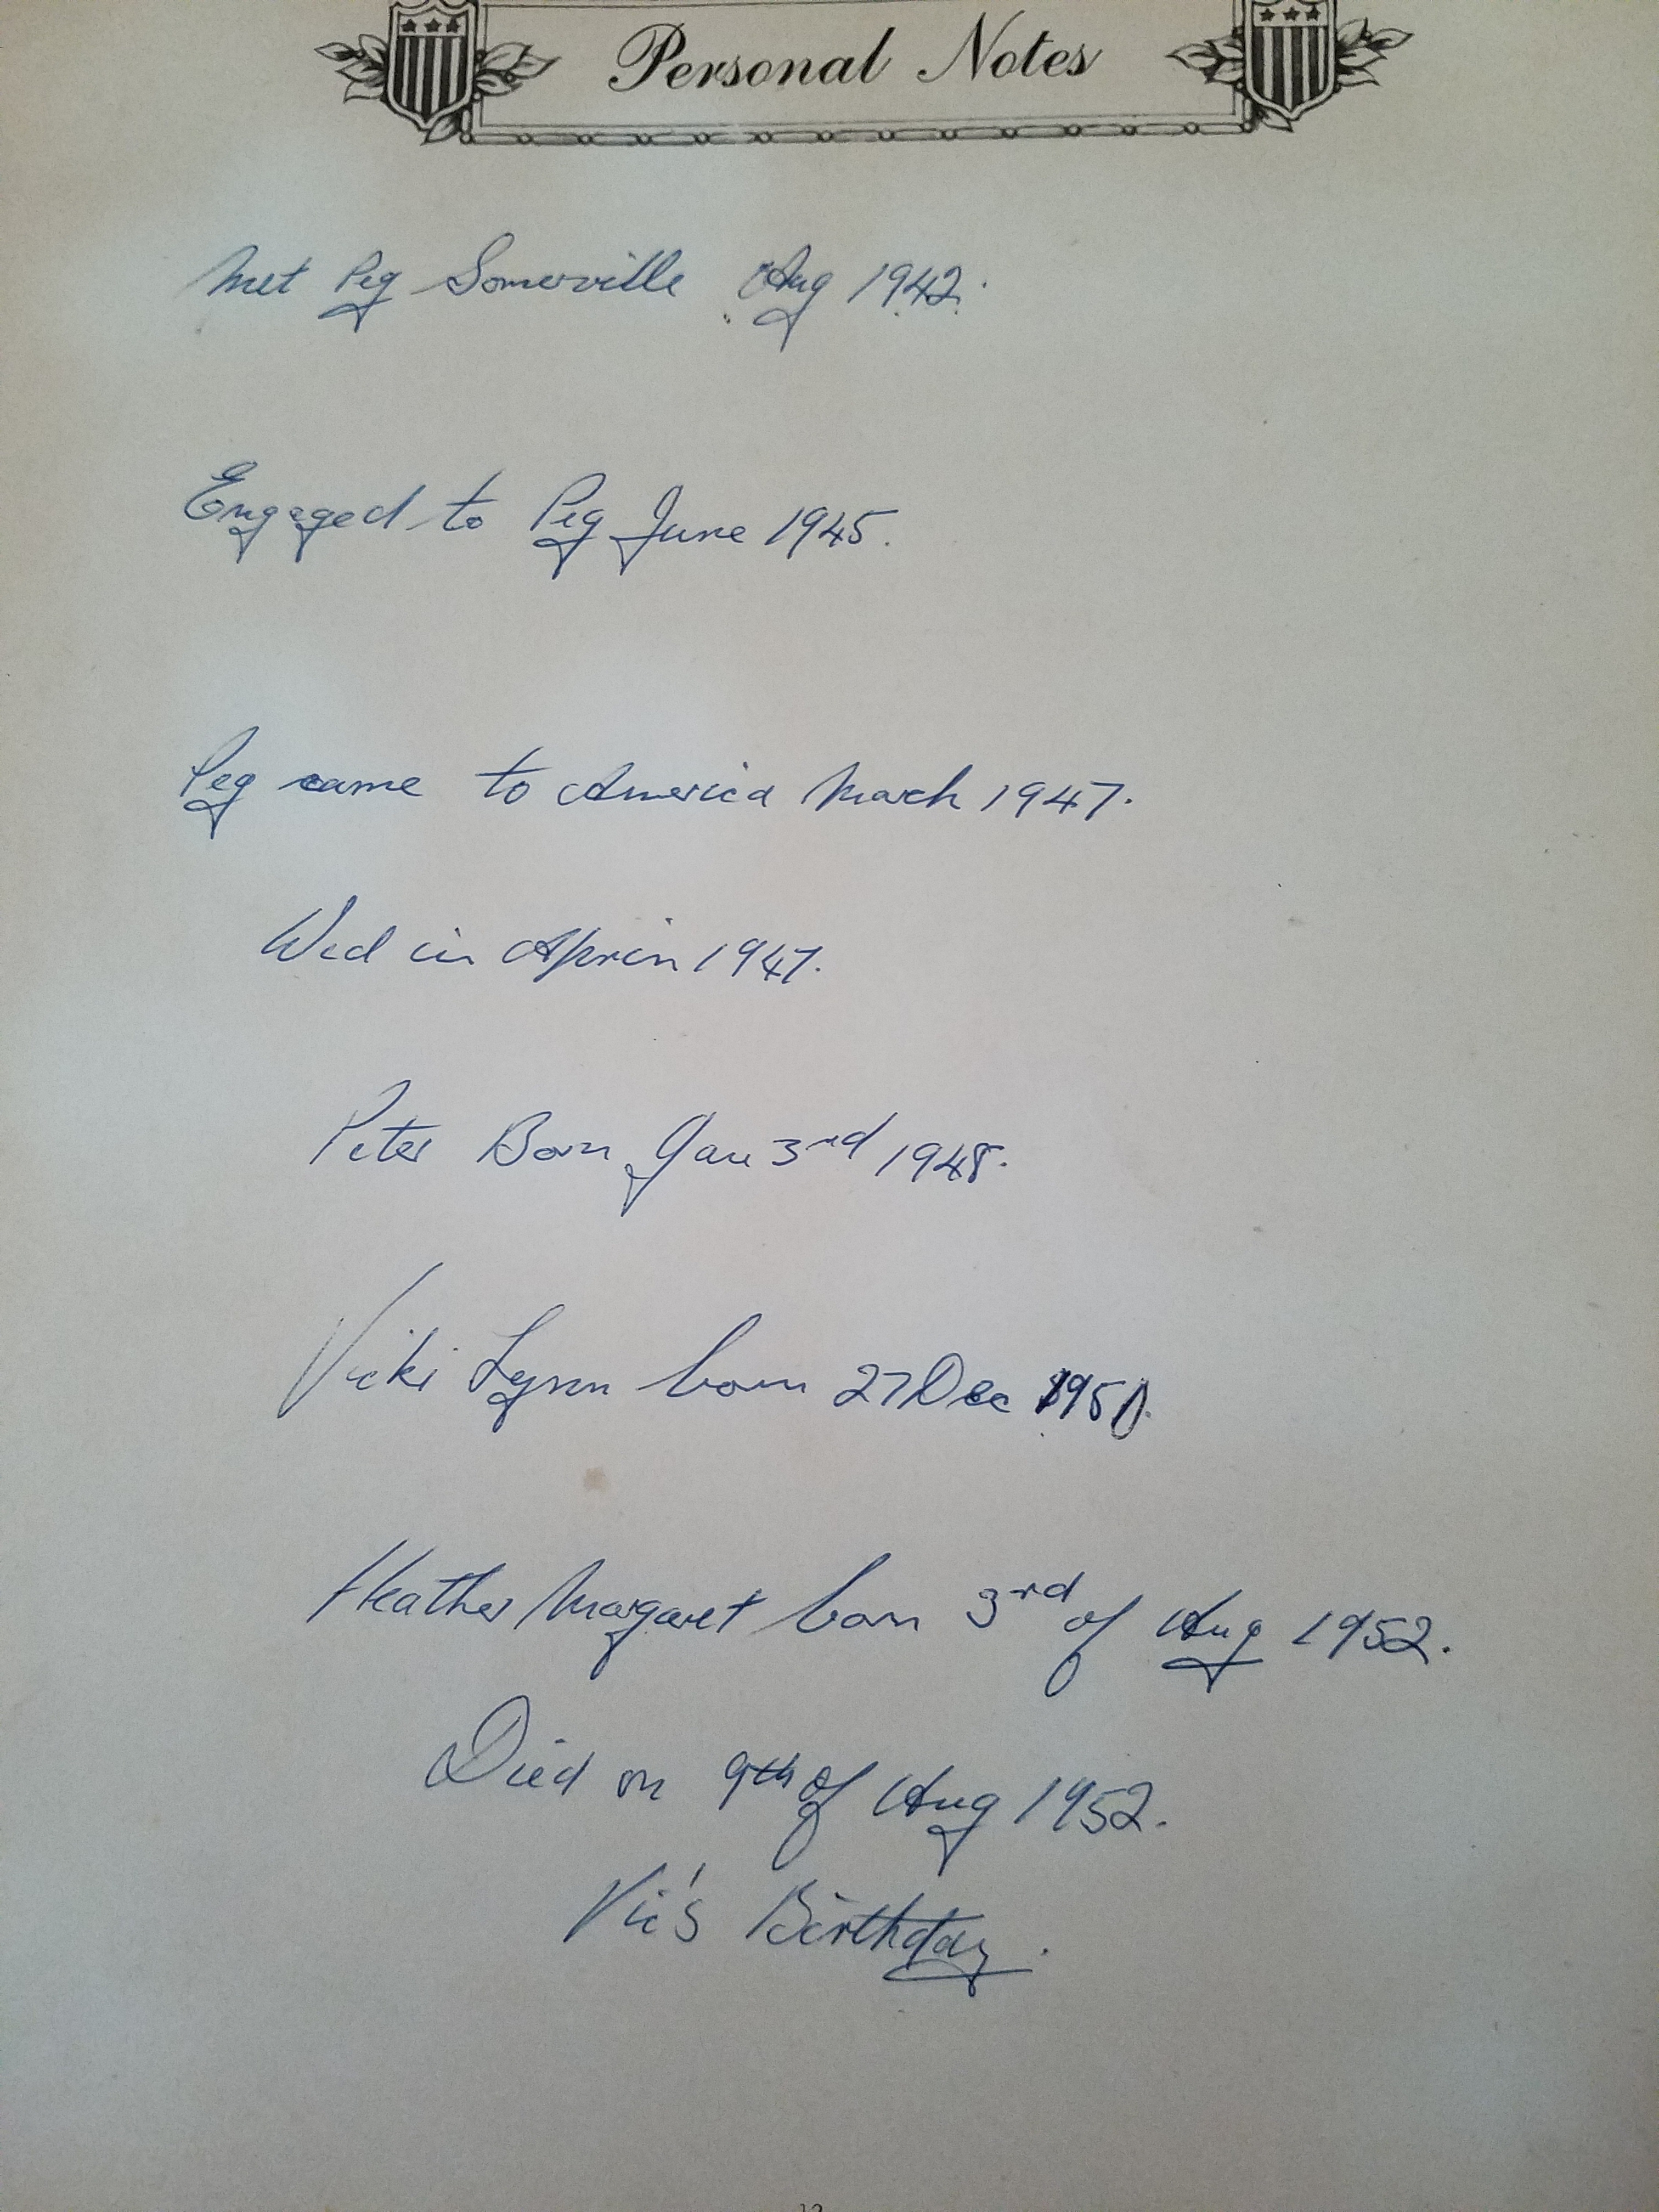 Personal Notes
Met Peg Somerville Aug 1942.
Engaged to Peg June 1945.
Peg came to America March 1947.
Wed in Aprin 1947.
Peter Born Jan 3rd 1948.
Vicki Lynn born 27 Dec
Heather Margaret born 3rd of Aug 1952.
Died on 9th of Aug 1952.
Vic's Birthday.